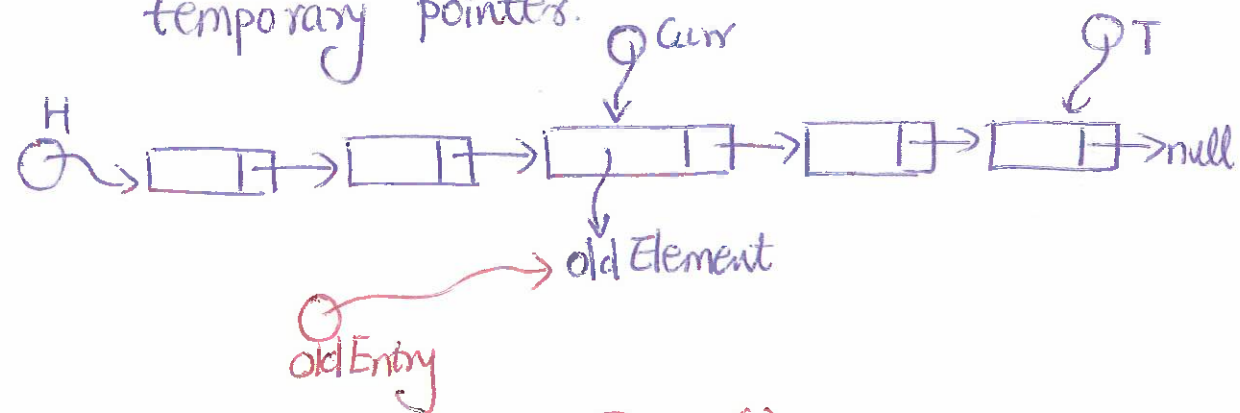 temporary pointers.
Curr
T
H
null
old Element
old Entry